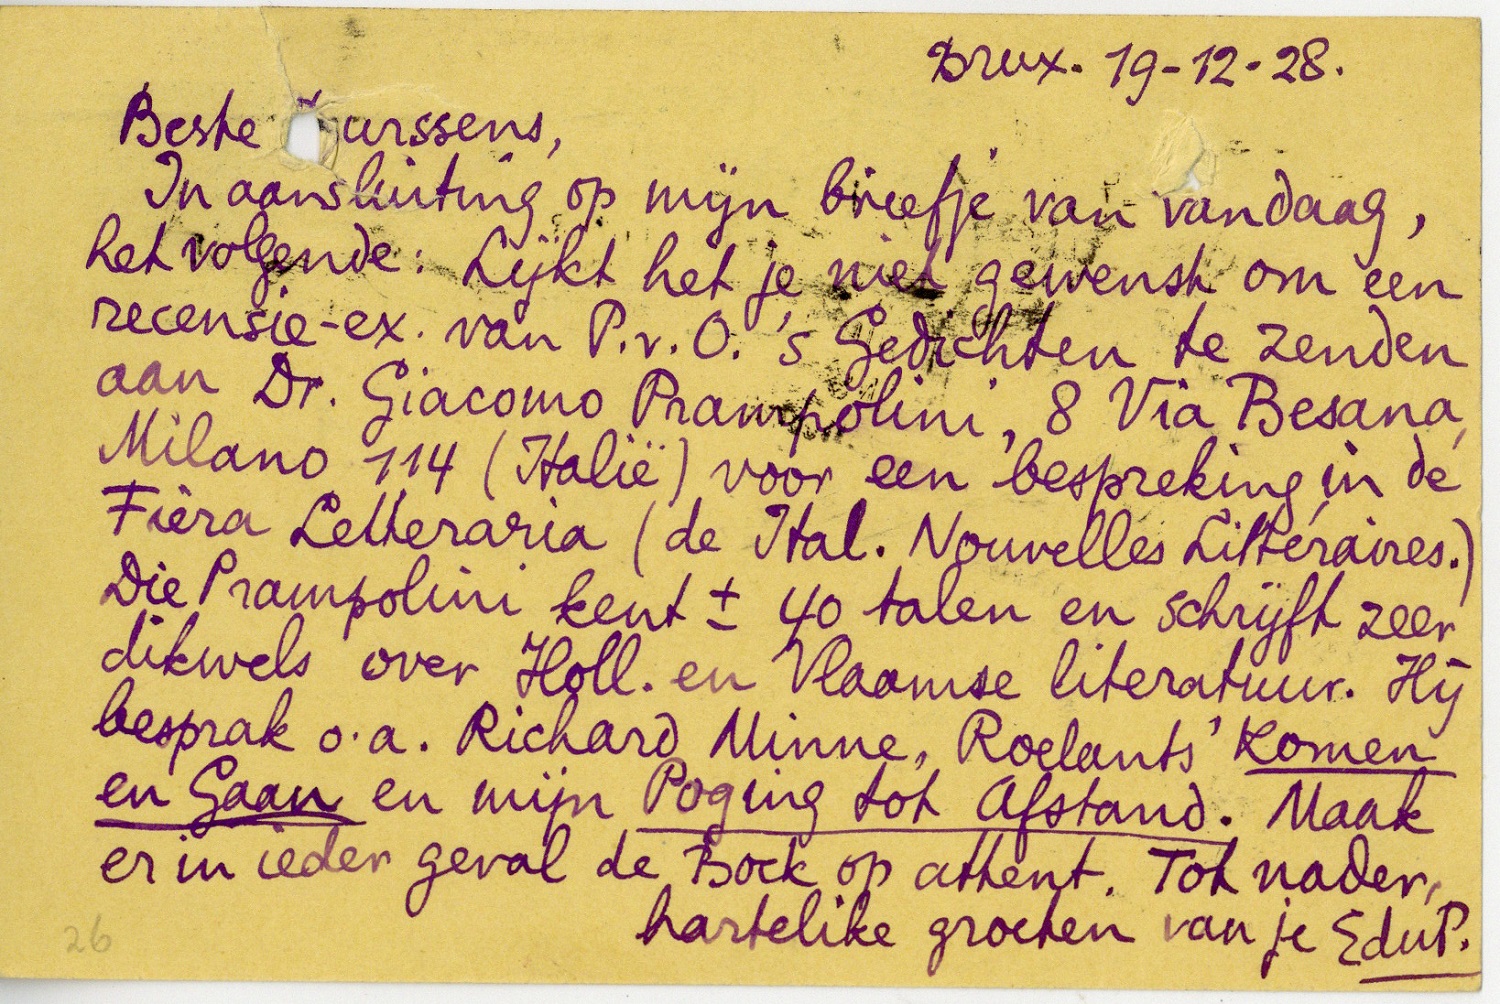 Brux. 19-12-28.
Beste Jurssens,
In aansluiting op mijn briefje van vandaag,
het volgende: Lijkt het je niet gewenst om een
recensie-ex. van P.v.O.'s Gedichten te zenden
aan Dr. Giacomo Prampolini, 8 Via Besana,
Milano 114 (Italië) voor een bespreking in de
Fiera Letteraria (de Ital. Nouvelles Littéraires.)
Die Prampolini kent ± 40 talen en schrijft zeer
dikwels over Holl. en Vlaamse literatuur. Hij
besprak o.a. Richard Minne, Roelants' Komen
en Gaan en mijn Poging tot Afstand. Maak
er in ieder geval de Bock op attent. Tot nader,
hartelike groeten van je EduP.
26